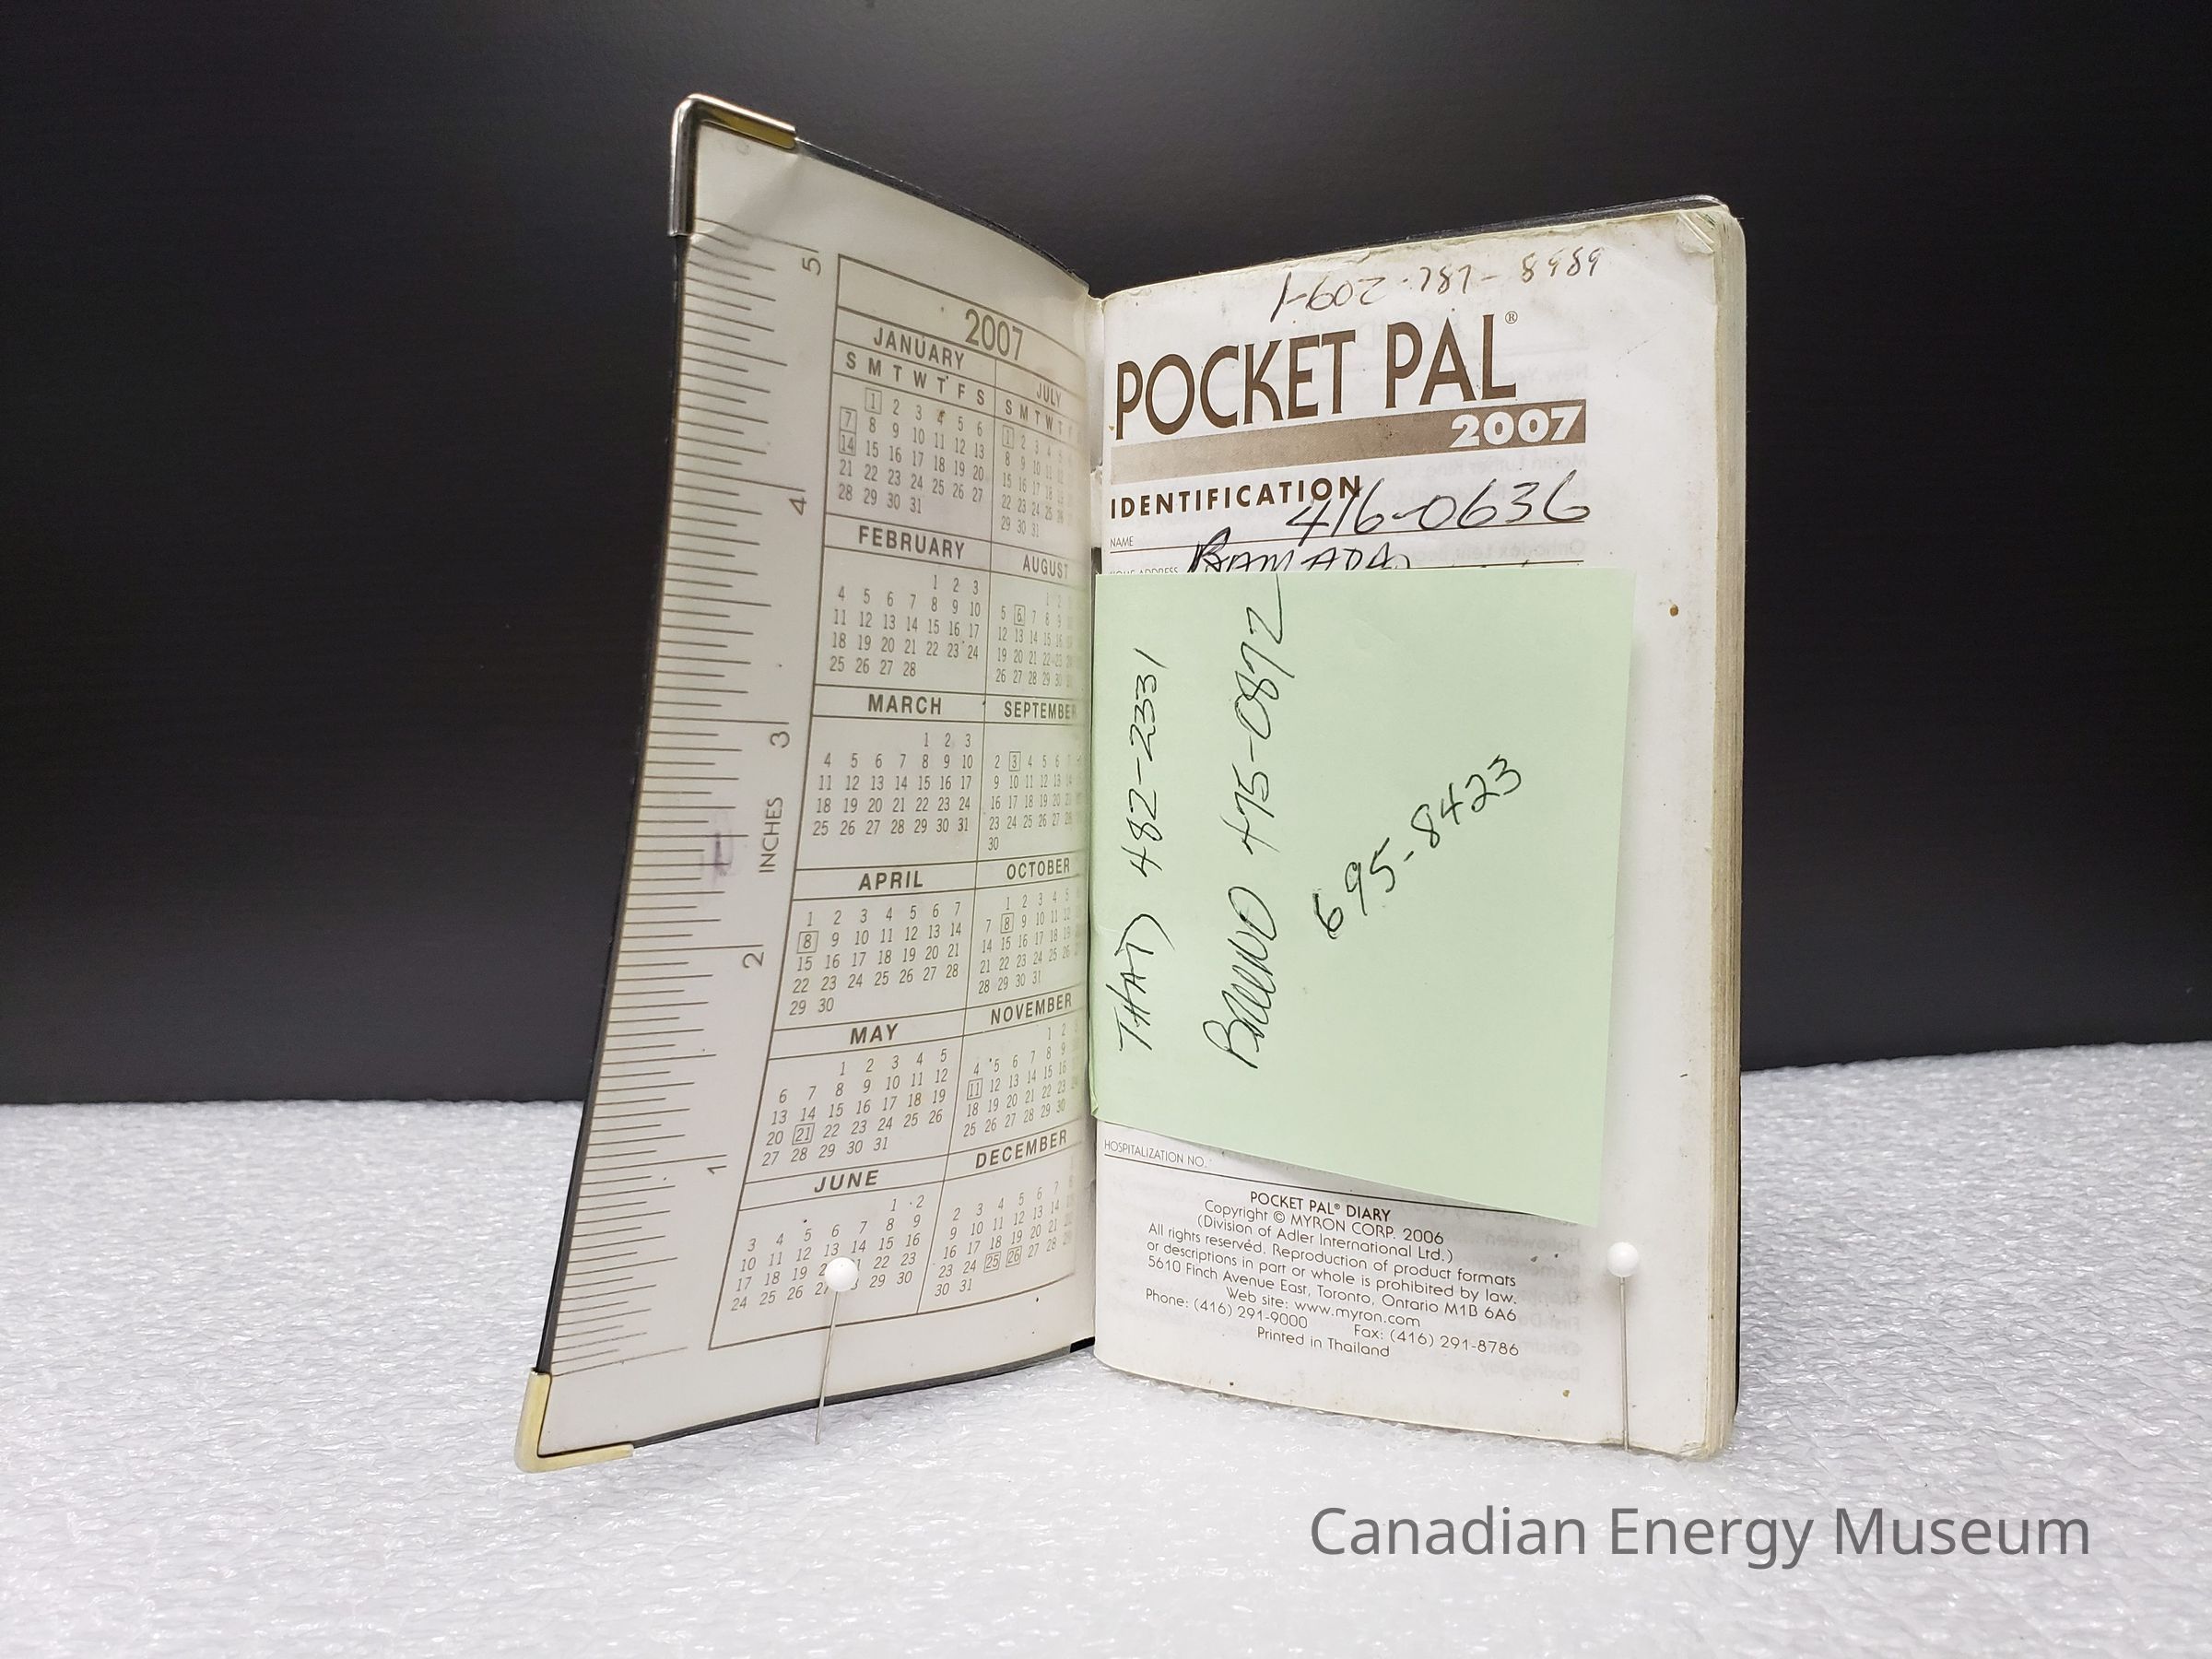 5
4
3
INCHES
2
1
2007
JANUARY
S M T W T F S
1 2 3 4 5 6
7 8 9 10 11 12 13
14 15 16 17 18 19 20
21 22 23 24 25 26 27
28 29 30 31
FEBRUARY
1 2 3
4 5 6 7 8 9 10
11 12 13 14 15 16 17
18 19 20 21 22 23 24
25 26 27 28
MARCH
1 2 3
4 5 6 7 8 9 10
11 12 13 14 15 16 17
18 19 20 21 22 23 24
25 26 27 28 29 30 31
APRIL
1 2 3 4 5 6 7
8 9 10 11 12 13 14
15 16 17 18 19 20 21
22 23 24 25 26 27 28
29 30
MAY
1 2 3 4 5
6 7 8 9 10 11 12
13 14 15 16 17 18 19
20 21 22 23 24 25 26
27 28 29 30 31
JUNE
1 2
3 4 5 6 7 8 9
10 11 12 13 14 15 16
17 18 19 2 22 23
24 25 26 27 29 30
JULY
S M T W T
1 2 3 4 5
8 9 10 11
15 16 17 18
22 23 24 25
29 30 31
AUGUST
1
5 6 7 8 9
12 13 14 15
19 20 21 22 23
26 27 28 29 30
SEPTEMBER
2 3 4 5 6
9 10 11 12 13
16 17 18 19 20
23 24 25 26 27
30
OCTOBER
1 2 3 4 5
7 8 9 10 11 12
14 15 16 17 18
21 22 23 24 25 26
28 29 30 31
NOVEMBER
1 2
4 5 6 7 8 9
11 12 13 14 15 16
18 19 20 21 22 23
25 26 27 28 29 30
DECEMBER
2 3 4 5 6 7
9 10 11 12 13 14
16 17 18 19 20 21
23 24 25 26 27 28
30 31
1-602-787-8989
POCKET PAL®
2007
IDENTIFICATION
416-0636
NAME
RAMADA
HOME ADDRESS
482-2331
475-0872
695-8423
HOSPITALIZATION NO.
POCKET PAL® DIARY
Copyright © MYRON CORP. 2006
(Division of Adler International Ltd.)
All rights reserved. Reproduction of product formats
or descriptions in part or whole is prohibited by law.
5610 Finch Avenue East, Toronto, Ontario M1B 6A6
Web site: www.myron.com
Phone: (416) 291-9000 Fax: (416) 291-8786
Printed in Thailand
Canadian Energy Museum